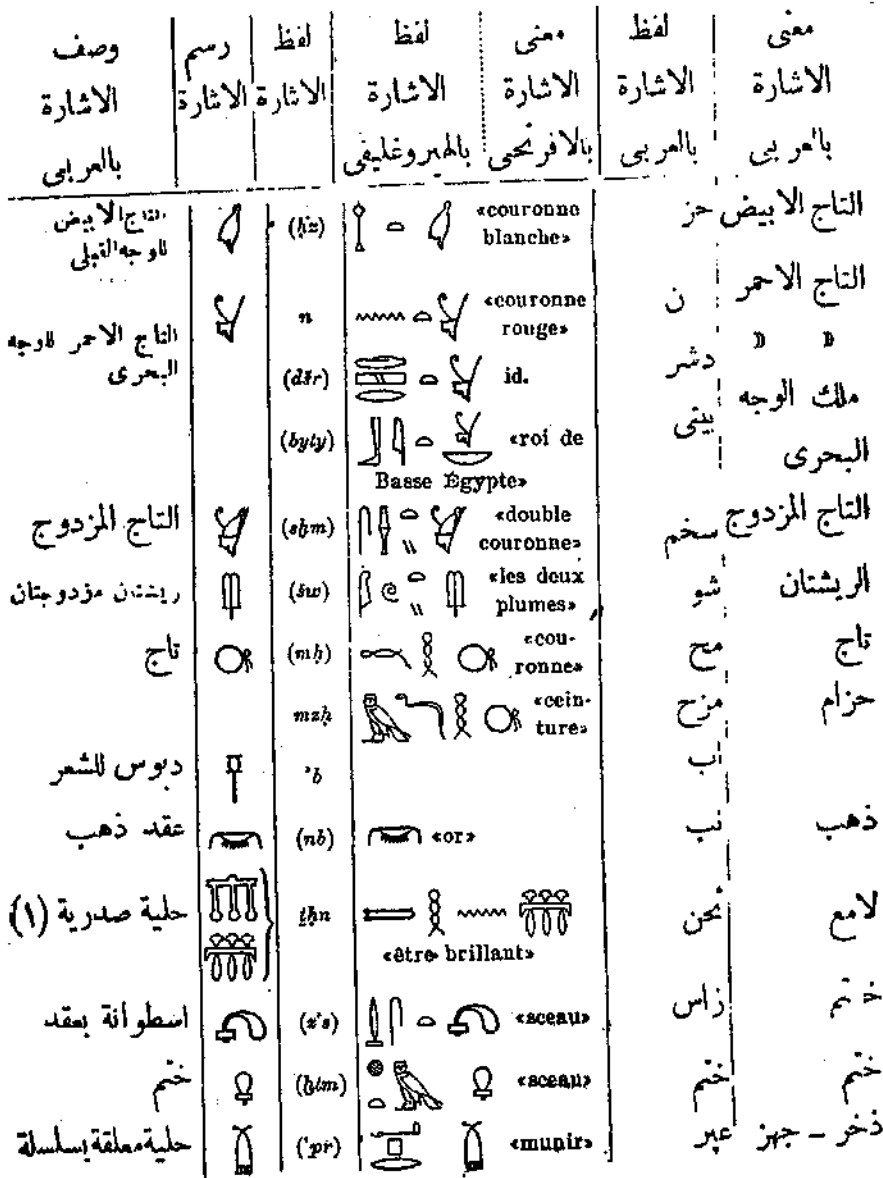 معنى الاشارة بالعربى | لفظ الاشارة بالعربى | معنى الاشارة بالافرنجى | لفظ الاشارة بالهيروغليفى | لفظ الاشارة | رسم الاشارة | وصف الاشارة بالعربى
التاج الابيض | حز | «couronne blanche» | (ḥz) | التاج الابيض للوجه القبلى
التاج الاحمر | ن | «couronne rouge» | n | التاج الاحمر للوجه البحرى
» » | دشر | id. | (dšr)
ملك الوجه البحرى | بيتى | «roi de Basse Égypte» | (byty)
التاج المزدوج | سخم | «double couronne» | (sḫm) | التاج المزدوج
الريشتان | شو | «les deux plumes» | (šw) | ريشتان مزدوجتان
تاج | مح | «couronne» | (mḥ) | تاج
حزام | مزح | «ceinture» | mzḥ
اب | ʾb | دبوس للشعر
ذهب | نب | «or» | (nb) | عقد ذهب
لامع | ثحن | «être brillant» | ṯḥn | حلية صدرية (١)
ختم | زاس | «sceau» | (zʾs) | اسطوانة بعقد
ختم | ختم | «sceau» | (ḫtm) | ختم
ذخر - جهز | عبر | «munir» | (ʿpr) | حلية معلقة بسلسلة